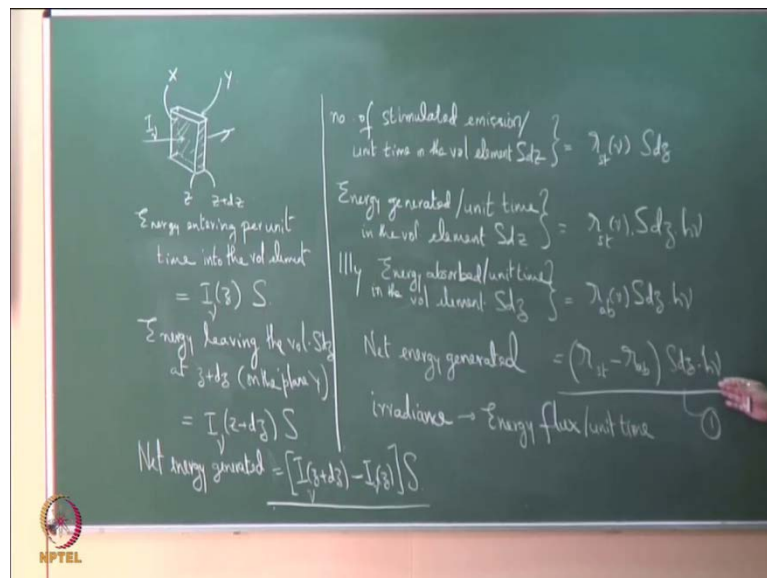 X Y
I_ν
z z+dz
Energy entering per unit
time into the vol element
= I_ν(z) S
Energy leaving the vol. Sdz
at z+dz (on the plane Y)
= I_ν(z+dz) S
Net energy generated = [I_ν(z+dz) - I_ν(z)] S
no. of stimulated emission/
unit time in the vol element Sdz } = r_st(ν) Sdz
Energy generated/unit time
in the vol element Sdz } = r_st(ν). Sdz hν
Illly Energy absorbed/unit time
in the vol element Sdz } = r_ab(ν) Sdz. hν
Net energy generated = (r_st - r_ab) Sdz. hν
irradiance → Energy flux/unit time ①
NPTEL